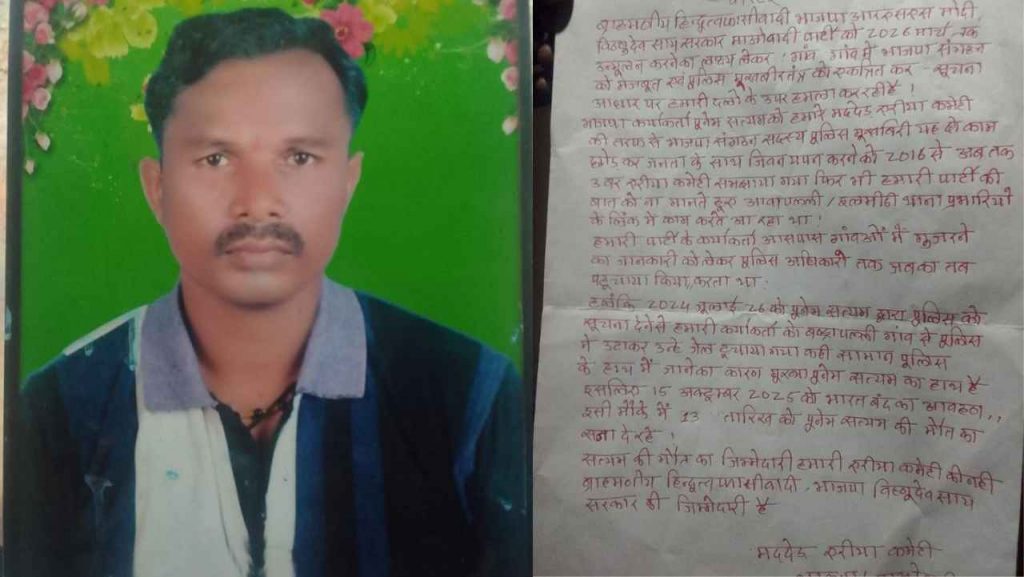 ब्राहमणीय हिन्दूत्वफासीवादी भाजपा आरएसएस मोदी
विष्णुदेव साय सरकार माओवादी पार्टी को 2026 मार्च तक
उन्मूलन करने का लक्ष्य लेकर गांव गांव में भाजपा संगठन
को मजबूत एवं पुलिस मुखबीर तंत्र को एकत्रित कर सूचना
आधार पर हमारी दलो के उपर हमला कर रही है!
भाजपा कार्यकर्ता पूनेम सत्यम को हमारे मददेड़ एरीया कमेटी
की तरफ से भाजपा संगठन सदस्य पुलिस मुखबिरी यह दो काम
छोड कर जनता के साथ जिवन यापन करने को 2016 से अब तक
3 बार एरीया कमेटी समझाया गया फिर भी हमारी पार्टी की
बात को ना मानते हूए आवापल्ली / इलमीडी थाना प्रभारियो
के लिंक में काम करते आ रहा था!
हमारी पार्टी के कार्यकर्ता आसपास गांवओं में गुजरने
का जानकारी को लेकर पुलिस अधिकारी तक जबका तब
पहूचाया किया करता था.
हलाकि 2024 जूलाई 26 को पूनेम सत्यम द्वारा पुलिस को
सूचना देने से हमारी कार्यकर्ता को गांव से पुलिस
ने उठाकर उन्हे जेल कही सामान पुलिस
के हाथ में जाने का कारण पूनेम सत्यम का हाथ है
इसलिए 15 अक्टूम्बर 2025 को भारत बंद का आवहान,,
इसी मौके में 13 तारिख को पूनेम सत्यम की मौत का
सजा दे रहे!
सत्यम की मौत का जिम्मेदारी हमारी एरीया कमेटी की नही
ब्राहमणीय हिन्दूत्व फासीवादी भाजपा विष्णुदेव साय
सरकार की जिम्मेदारी है
मददेड एरीया कमेटी